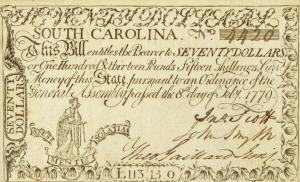 SEVENTY DOLLARS
SOUTH CAROLINA. No 4420
This Bill entitles the Bearer to SEVENTY DOLLARS
or One Hundred & thirteen Pounds Fifteen Shillings Curr
Money of this State pursuant to an Ordinance of the
General Assembly passed the 8th day of July 1779
SEVENTY DOLLARS
MENTE
SOLIDA
John Scott
John Smyth
L113.15.0